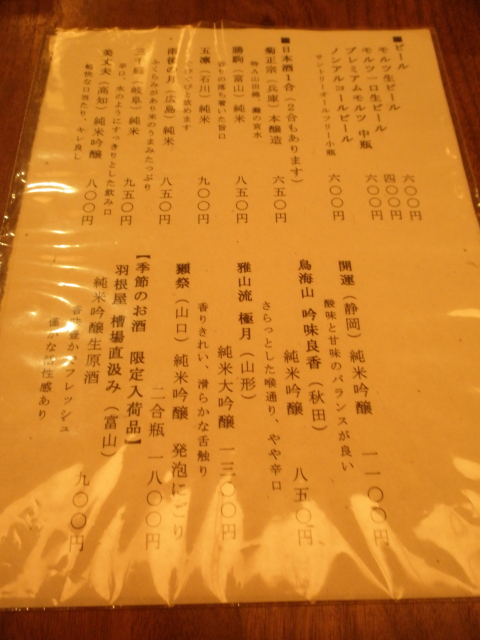 ■ビール
モルツ生ビール 六〇〇円
モルツ一口生ビール 四〇〇円
プレミアムモルツ 中瓶 六〇〇円
ノンアルコールビール 六〇〇円
サントリーオールフリー小瓶
■日本酒1合(2合もあります)
菊正宗(兵庫)本醸造 六五〇円
特A山田錦、灘の宮水
勝駒(富山)純米 八五〇円
の落ち着いた旨口
五凛(石川)純米 九〇〇円
と飲めます
雨後の月(広島)純米 八五〇円
ふくらみがあり米のうまみたっぷり
三千盛(岐阜)純米 九五〇円
辛口、水のようにすっきりとした飲み口
美丈夫(高知)純米吟醸 八〇〇円
軽快な口当たり、キレ良し
開運(静岡)純米吟醸 一一〇〇円
酸味と甘味のバランスが良い
鳥海山 吟味良香(秋田)
純米吟醸 八五〇円
さらっとした喉通り、やや辛口
雅山流 極月(山形)
純米大吟醸 一三〇〇円
香りきれい、滑らかな舌触り
獺祭(山口)純米吟醸 発泡にごり
二合瓶 一八〇〇円
【季節のお酒 限定入荷品】
羽根屋 槽場直汲み(富山)
純米吟醸生原酒 九〇〇円
フレッシュ
僅かな活性感あり